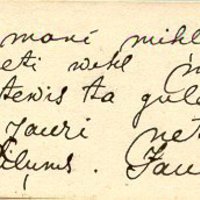 mani mihl
eti wehl
tewis ta gul
Jauri net
ilums. Jau